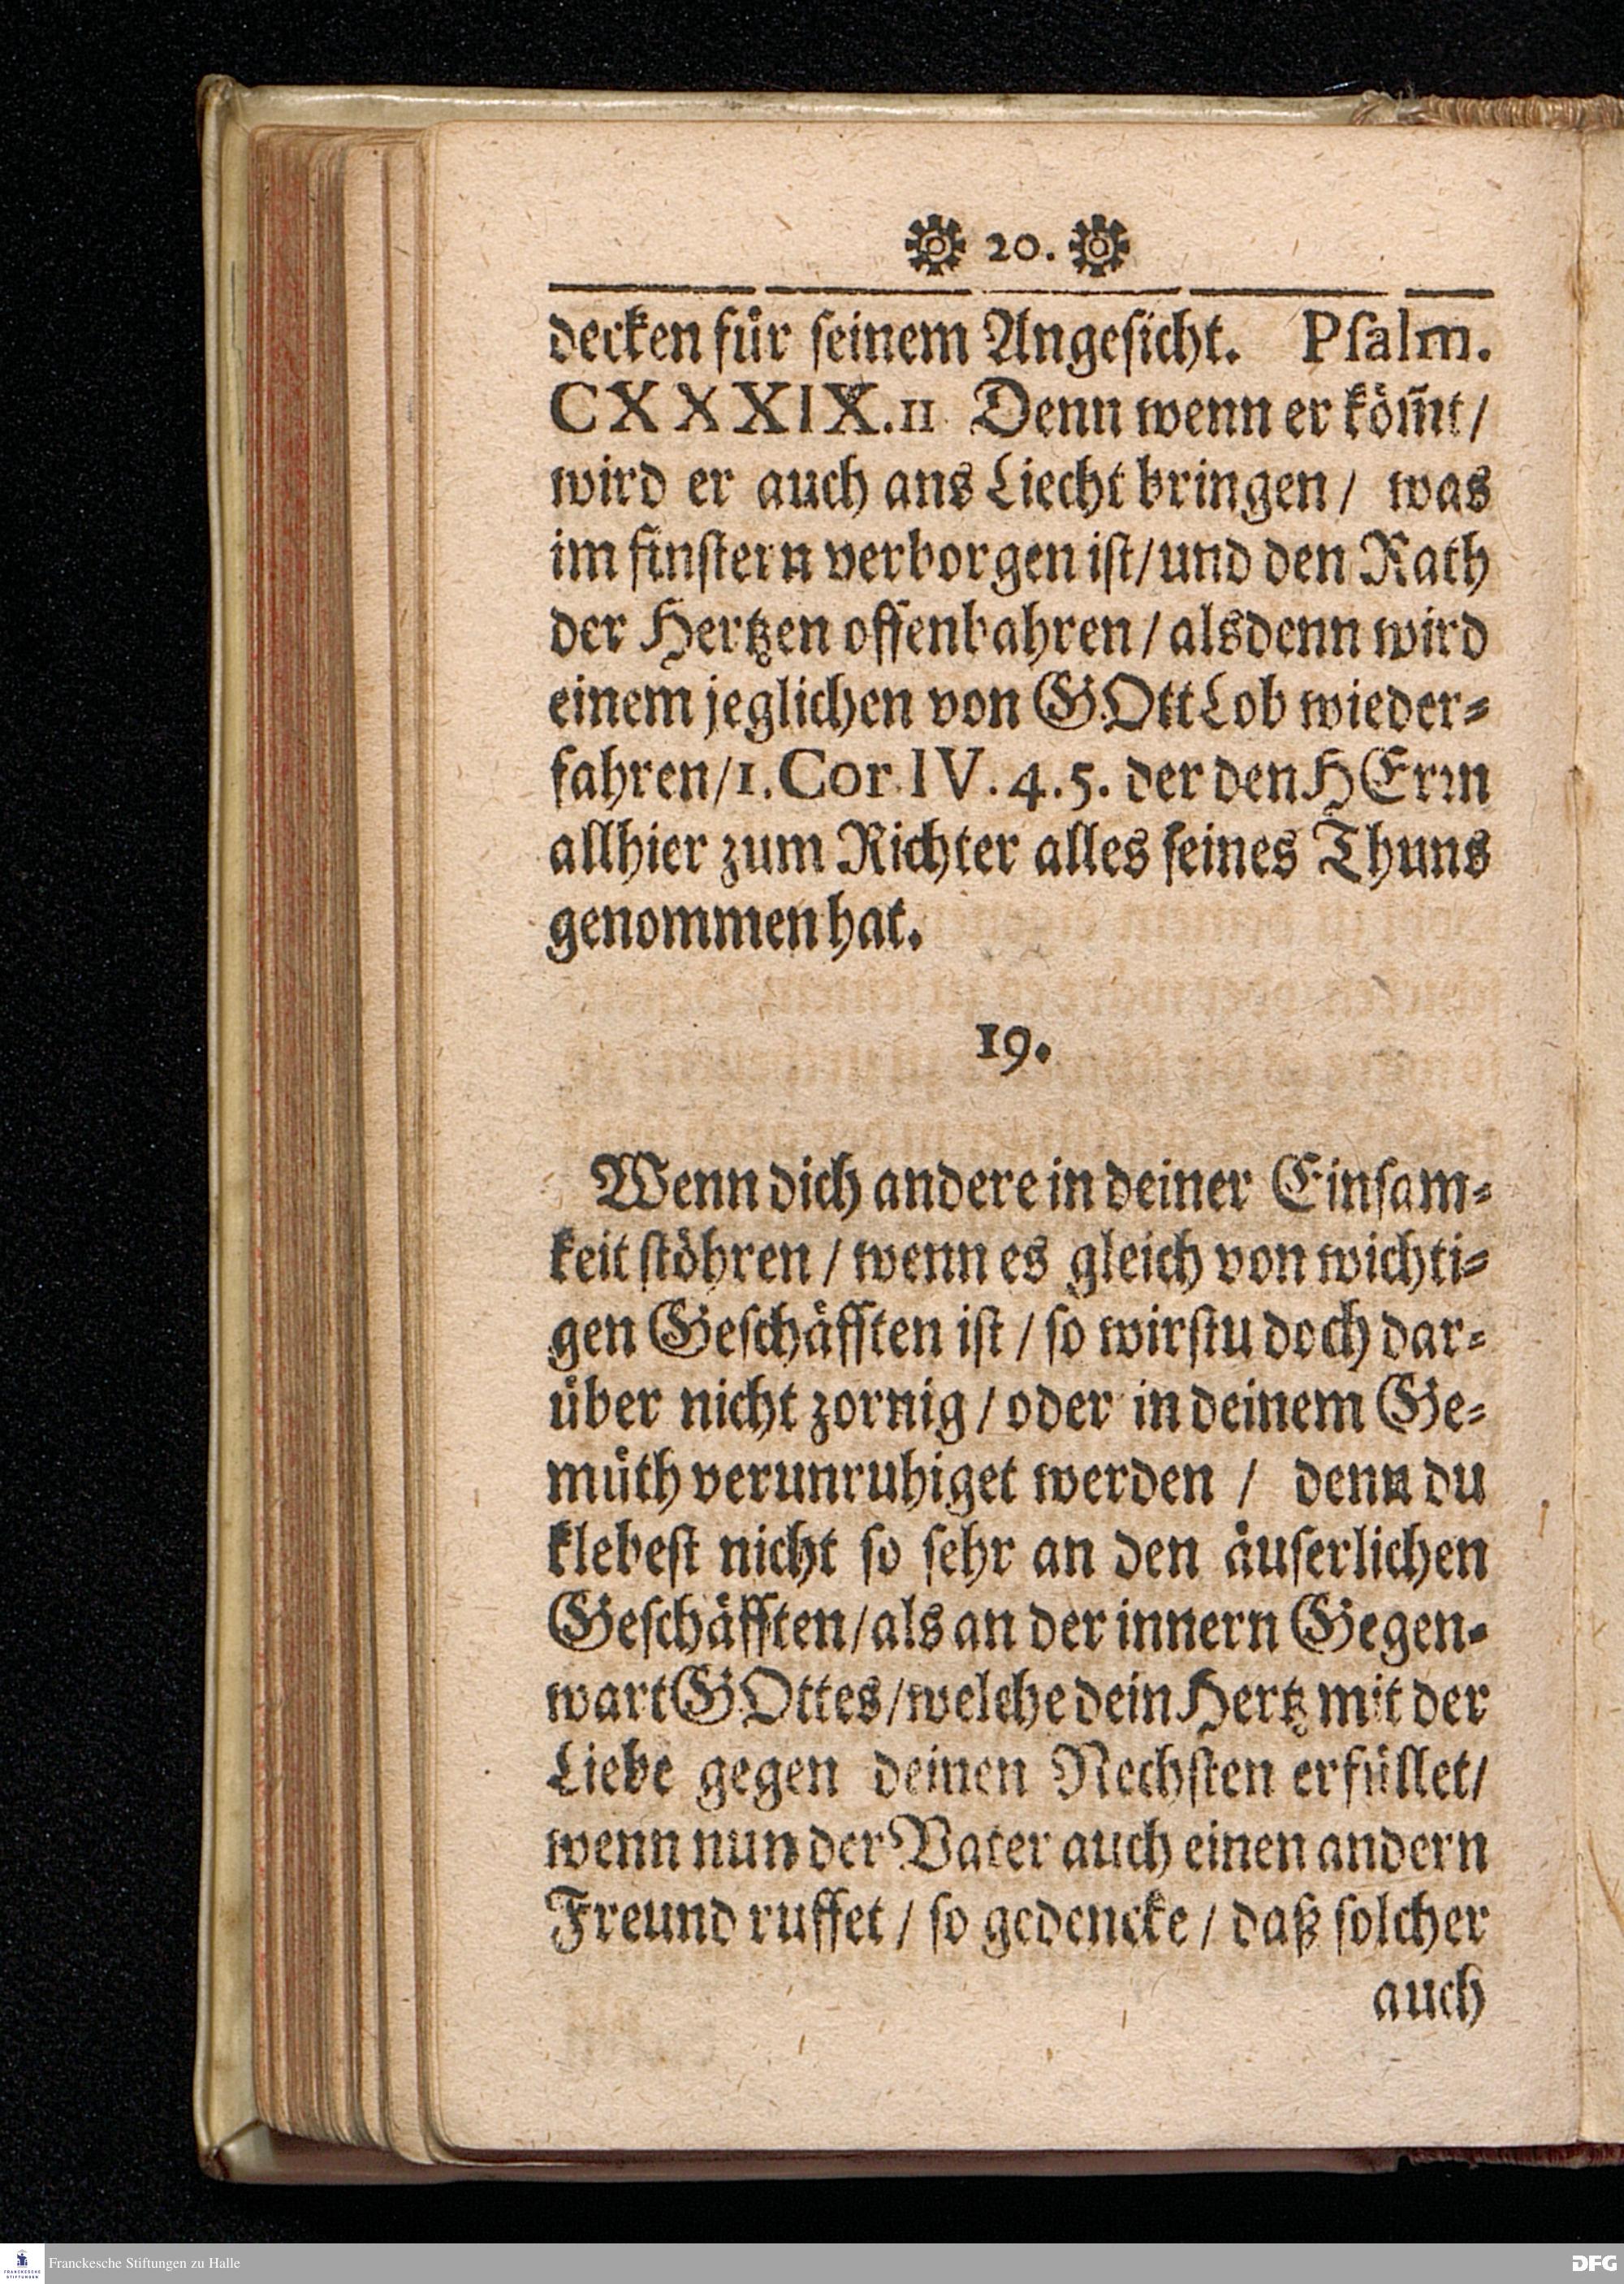 20.
decken fuͤr ſeinem Angeſicht. Pſalm.
CXXXIX. 11 Denn wenn er koͤm̃t/
wird er auch ans Liecht bringen/ was
im finſtern verborgen iſt/und den Rath
der Hertzen offenbahren/ alsdenn wird
einem jeglichen von GOtt Lob wieder⸗
fahren/1. Cor. IV. 4. 5. der den HErrn
allhier zum Richter alles ſeines Thuns
genommen hat.
19.
Wenn dich andere in deiner Einſam⸗
keit ſtoͤhren / wenn es gleich von wichti⸗
gen Geſchaͤfften iſt / ſo wirſtu doch dar⸗
uͤber nicht zornig / oder in deinem Ge⸗
muͤth verunruhiget werden / denn du
klebeſt nicht ſo ſehr an den aͤuſerlichen
Geſchaͤfften/als an der innern Gegen⸗
wart GOttes/welche dein Hertz mit der
Liebe gegen deinen Nechſten erfuͤllet/
wenn nun der Vater auch einen andern
Freund ruffet / ſo gedencke / daß ſolcher
auch
FRANCKESCHE STIFTUNGEN
Franckesche Stiftungen zu Halle
DFG